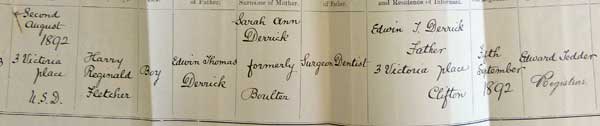 of Father.
Surname of Mother.
of Father.
and Residence of Informant.
Second
August
1892
3 Victoria
place
U.S.D.
Harry
Reginald
Fletcher
Boy
Edwin Thomas
Derrick
Sarah Ann
Derrick
formerly
Boulter
Surgeon Dentist
Edwin T. Derrick
Father
3 Victoria place
Clifton
September
1892
Edward Tedder
Registrar